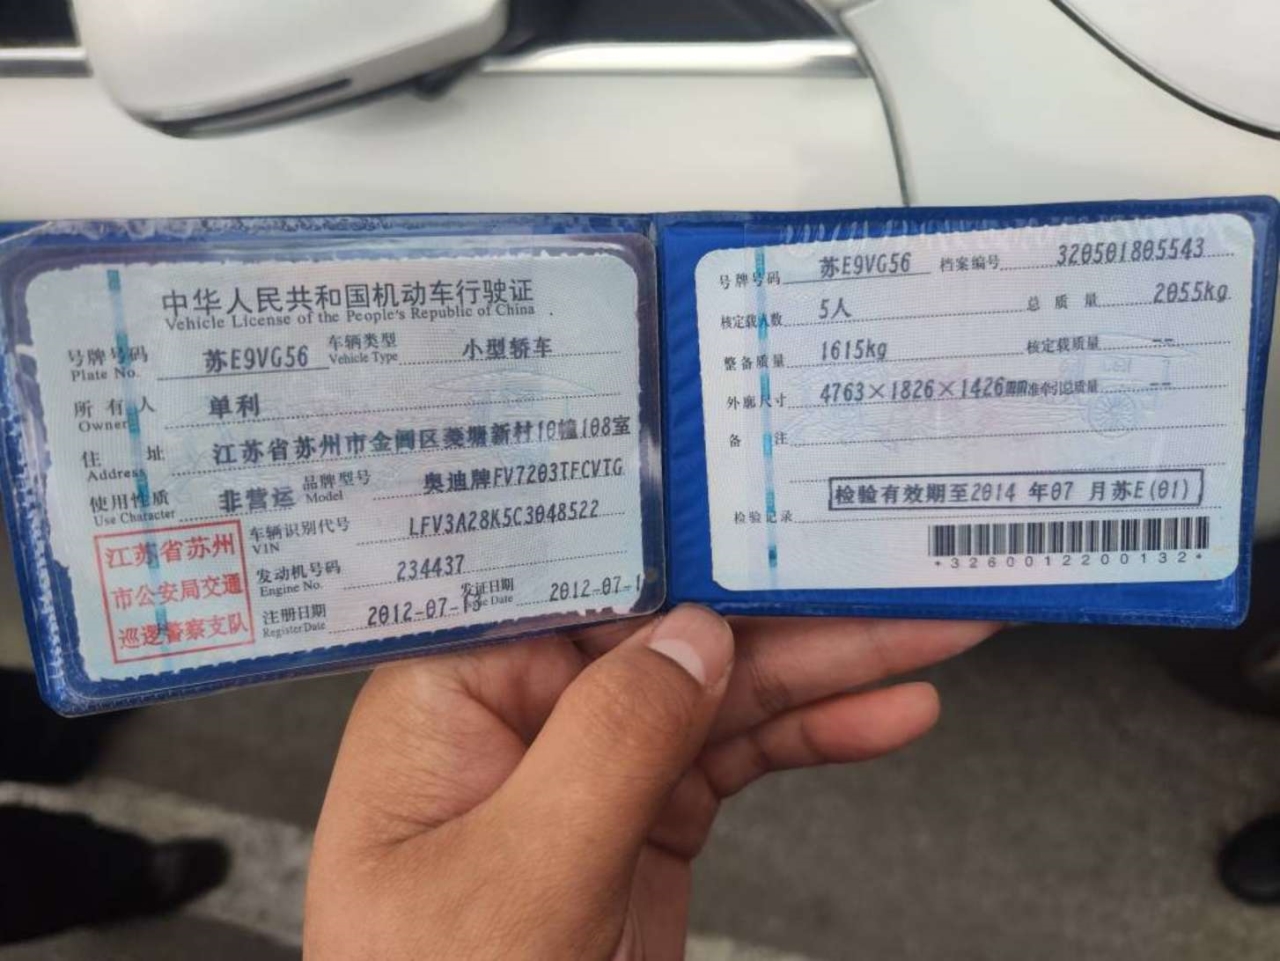 中华人民共和国机动车行驶证
Vehicle License of the People's Republic of China
号牌号码 苏E9VG56 车辆类型 小型轿车
Plate No. Vehicle Type
所有人 单利
Owner
住址 江苏省苏州市金阊区菱塘新村10幢108室
Address
使用性质 非营运 品牌型号 奥迪牌FV7203TFCVTG
Use Character Model
车辆识别代号 LFV3A28K5C3048522
VIN
发动机号码 234437
Engine No.
注册日期 2012-07-13 发证日期 2012-07-1
Register Date Issue Date
江苏省苏州
市公安局交通
巡逻警察支队
号牌号码 苏E9VG56 档案编号 320501805543
核定载人数 5人 总质量 2055kg
整备质量 1615kg 核定载质量 --
外廓尺寸 4763×1826×1426mm 准牵引总质量 --
备注
检验有效期至2014年07月苏E(01)
检验记录
*3260012200132*